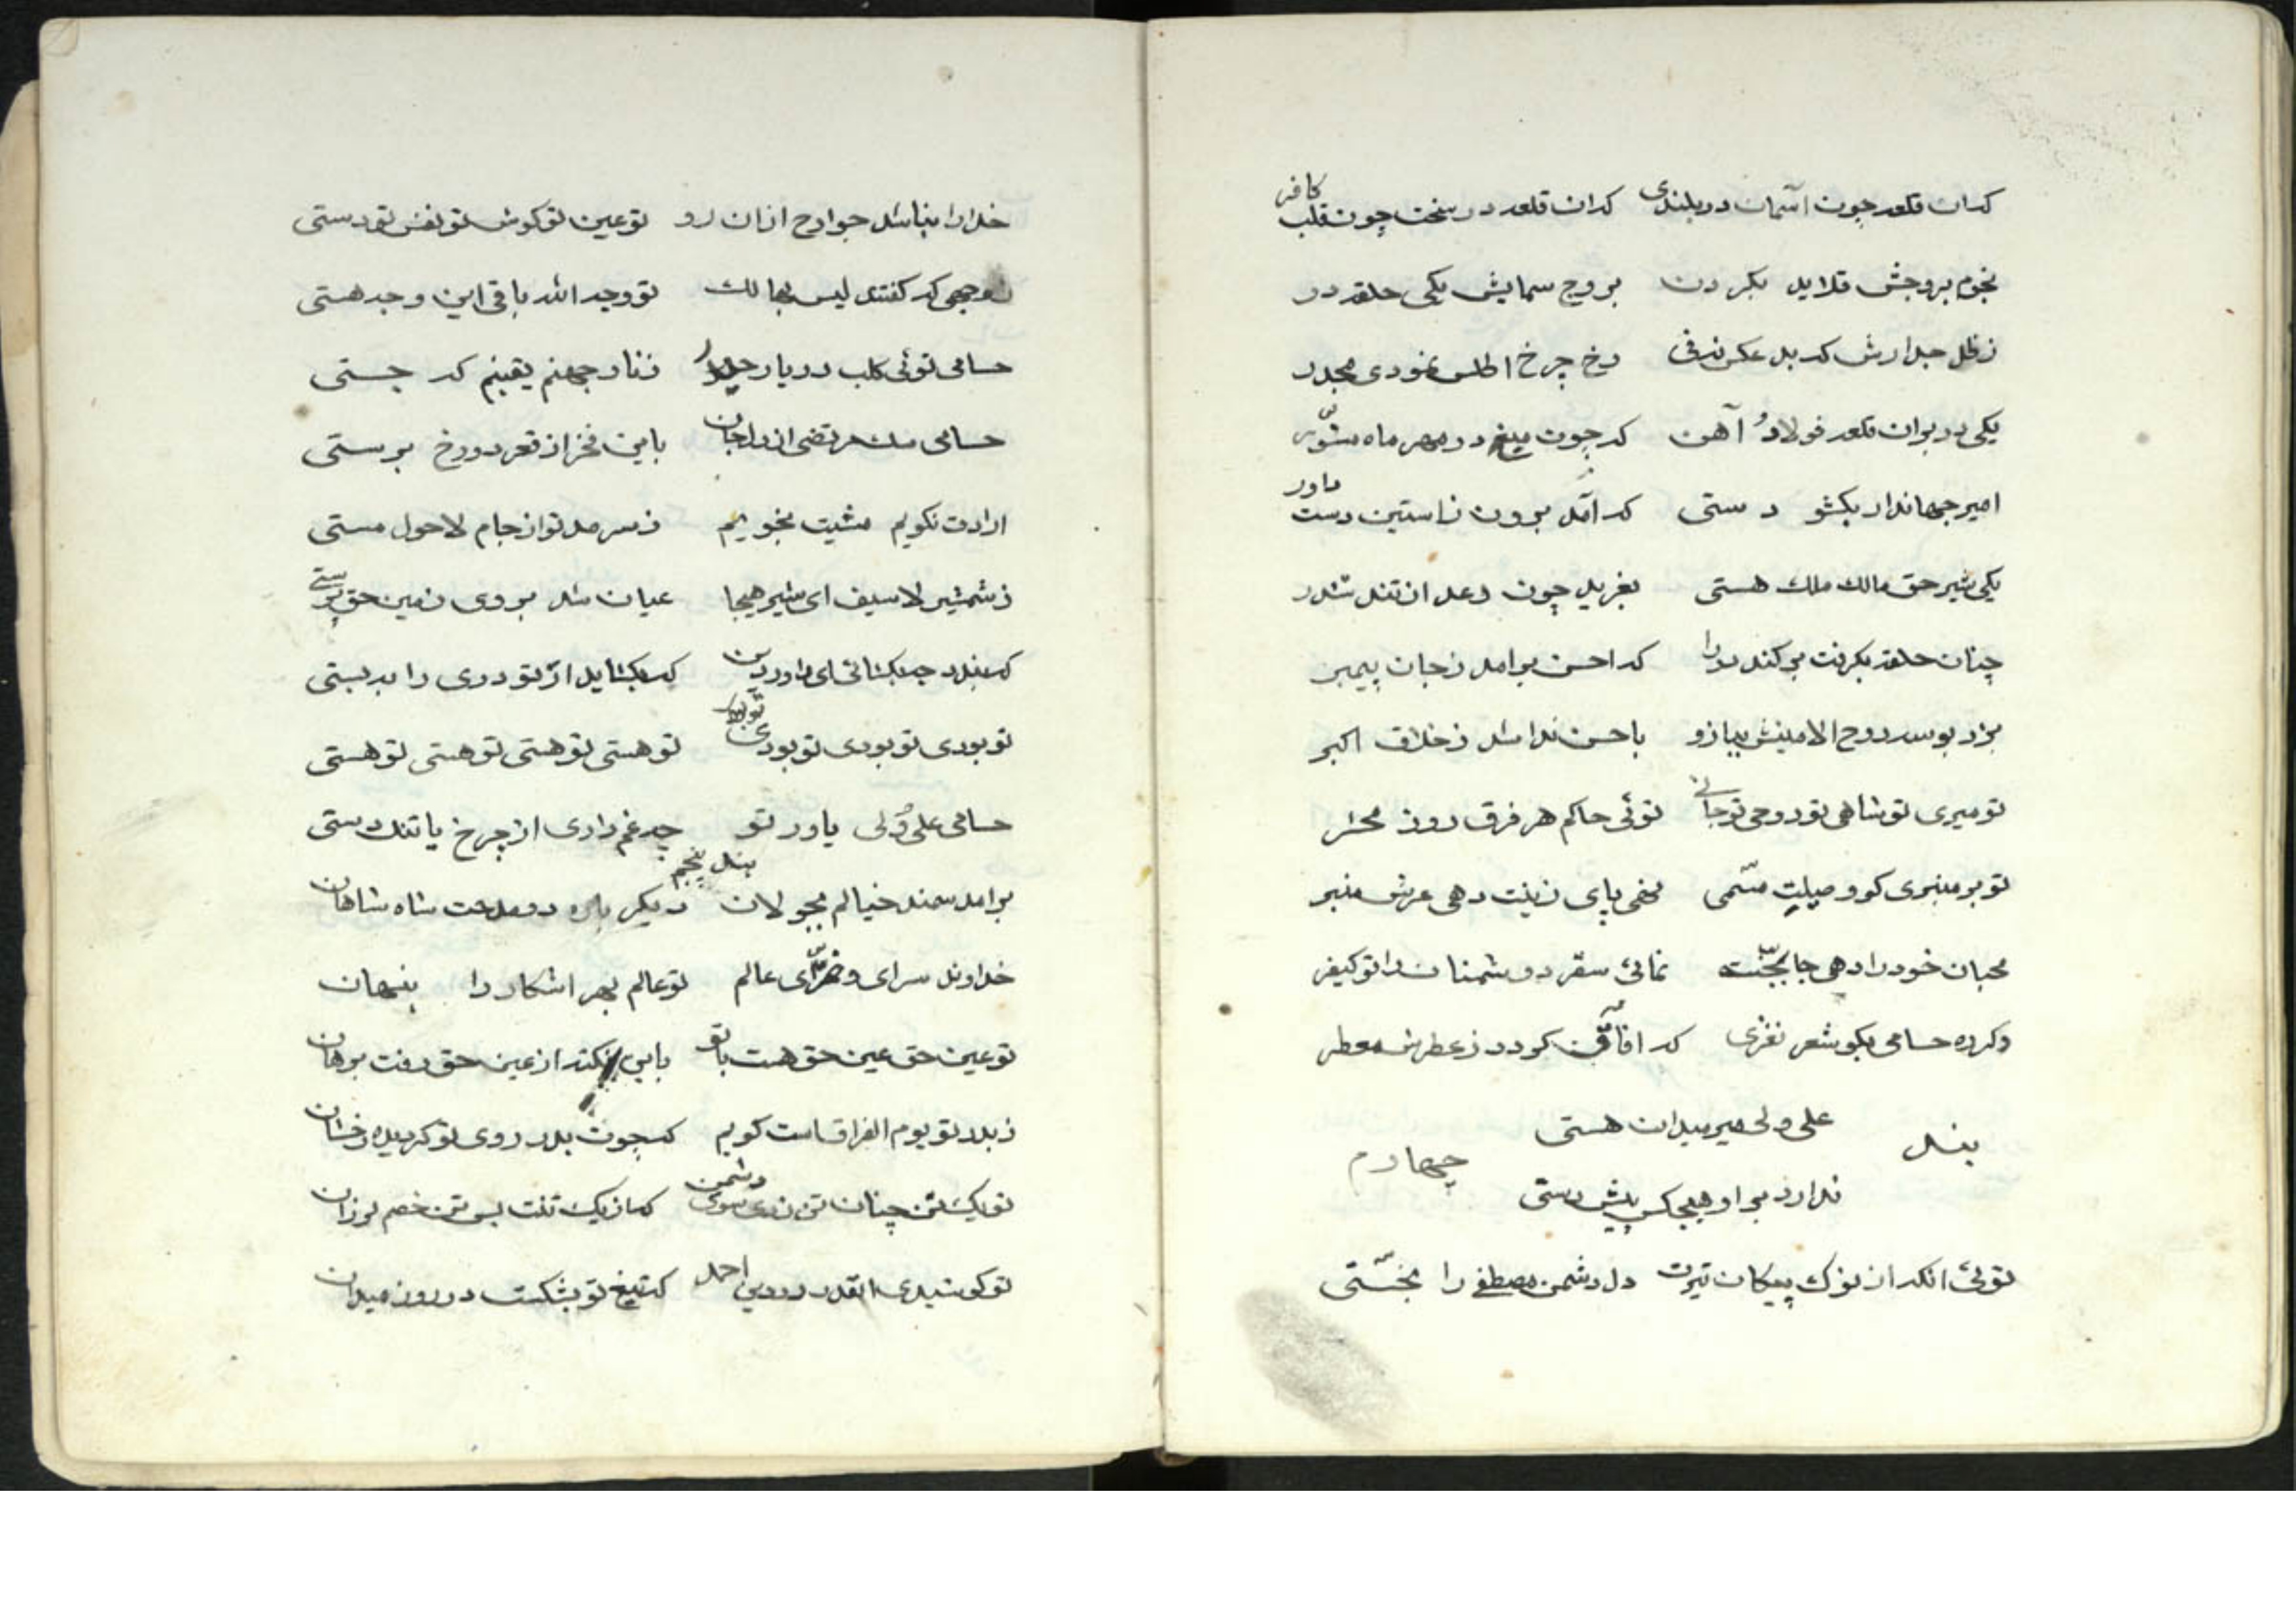 که ان قلعه چون آسمان در بلندی که ان قلعه در سخت چون قلب کافر
نجوم بروجش قلاید بکردن بروج سمایش یکی حلقه در
ز ظل جدارش که بد عکس رخ چرخ اطلس نمودی مجدر
یکی در بران قلعه فولاد آهن که چون میخ در مهر ماه
امیر جهاندار بکشود دستی که آمد برون ز استین دست داور
یکی شیر حق مالك ملك هستی بغرید چون رعد از تند
چنان حلقه بکرفت برکند در را که احسن برامد ز جان پیمبر
بزد بوسه روح الامینش ببازو باحسن ندا شد ز خلاق اکبر
تو میری تو شاهی تو روحی تو جانی توئی حاکم هر فرق روز محشر
تو بر منبری کو وصیلت مسمی نهی پای زینت دهی عرش منبر
محبان خود را دهی جا بجنت نمائی سقر دشمنان را تو کیفر
دکره حسامی بکو شعر نغزی که افاق کردد ز عطرش معطر
بند چهارم
علی ولی میر میدان هستی
ندارد بر او هیچکس پیش دستی
توئی انکه از نوک پیکان تیرت دل دشمن مصطفی را بخستی
خدا را نباشد جوارح ازان رو تو عین تو کوش تو نفس تو دستی
وجهی که کفتند لیس بهالك تو وجه الله باقی این وجه هستی
حسامی توئی کلب دربار حیدر ز نار جهنم یقینم که جستی
حسامی مرتضی از دل جان باین فخر از قعر دوزخ برستی
ارادت نکویم مشیت نجویم ز سرمد تو از جام لاحول مستی
ز شمشیر لا سیف ای شیر هیجا عیان شد بروی زمین حق پرستی
که بندد چه بکشائی ای داور دین که بکشاید ار تو دری را به بستی
تو بودی تو بودی تو بودی تو بودی تو هستی تو هستی تو هستی تو هستی
حسامی علی ولی یاور تو چه غم داری از چرخ یا تنك دستی
بند پنجم
برامد سمند خیالم بجولان دیکر باره در مدحت شاه شاهان
خداوند سرای و عالم تو عالم بهر اشکار را بنهان
تو عین حق عین حق هست با تو باین نکته از عین حق رفت برهان
ز بدر تو یوم الفراقست کویم که چون بدر روی تو کردیده رخشان
تو یك تن چنان تن زدی سوی دشمن که از یك تنت بس تن خصم لرزان
تو کوشیدی انقدر در دین احمد که تیغ تو بشکست در روز میدان